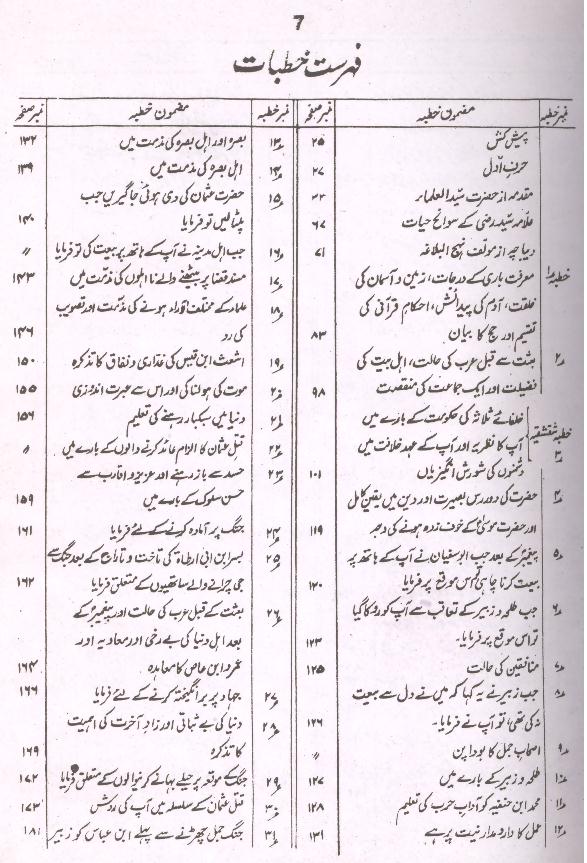 7
فہرست خطبات
نمبر خطبہ
مضمون خطبہ
نمبر صفحہ
پیش کش ۲۵
حرفِ اوّل ۲۷
مقدمہ از حضرت سیّد العلماء
علامہ سیّد رضی کے سوانح حیات ۶۷
دیباچہ از مؤلف نہج البلاغہ ۷۱
خطبہ ۱ معرفت باری کے درجات، زمین و آسمان کی
خلقت، آدم کی پیدائش، احکام قرآنی کی
تقسیم اور حج کا بیان ۸۳
۲ بعثت سے قبل عرب کی حالت، اہل بیت کی
فضیلت اور ایک جماعت کی منقصت ۹۸
خطبہ شقشقیہ ۳ خلفائے ثلاثہ کی حکومت کے بارے میں
آپ کا نظریہ اور آپ کے عہد خلافت میں
دشمنوں کی شورش انگیزیاں ۱۰۱
۴ حضرت کی دوررس بصیرت اور دین میں یقین کامل
اور حضرت موسیٰ کے خوف زدہ ہونے کی وجہ ۱۱۹
۵ پیغمبر کے بعد جب ابوسفیان نے آپ کے ہاتھ پر
بیعت کرنا چاہی تو اس موقع پر فرمایا ۱۲۰
۶ جب طلحہ و زبیر کے تعاقب سے آپ کو روکا گیا
تو اس موقع پر فرمایا۔ ۱۲۳
۷ منافقین کی حالت ۱۲۵
۸ جب زبیر نے یہ کہا کہ میں نے دل سے بیعت
نہ کی تھی، تو آپ نے فرمایا۔ ۱۲۶
۹ اصحاب جمل کا بودا پن 〃
۱۰ طلحہ و زبیر کے بارے میں ۱۲۷
۱۱ محمد ابن حنفیہ کو آداب حرب کی تعلیم ۱۲۸
۱۲ عمل کا دارومدار نیت پر ہے ۱۳۱
نمبر خطبہ
مضمون خطبہ
نمبر صفحہ
۱۳ بصرہ اور اہل بصرہ کی مذمت میں ۱۳۲
۱۴ اہل بصرہ کی مذمت میں ۱۳۹
۱۵ حضرت عثمان کی دی ہوئی جاگیریں جب
پلٹا لیں تو فرمایا ۱۴۰
۱۶ جب اہل مدینہ نے آپ کے ہاتھ پر بیعت کی تو فرمایا 〃
۱۷ مسند قضا پر بیٹھنے والے نااہلوں کی مذمّت میں ۱۴۳
۱۸ علماء کے مختلف الآراء ہونے کی مذمّت اور تصویب
کی رد ۱۴۶
۱۹ اشعث ابن قیس کی غدّاری و نفاق کا تذکرہ ۱۵۰
۲۰ موت کی ہولناکی اور اس سے عبرت اندوزی ۱۵۵
۲۱ دنیا میں سبکبار رہنے کی تعلیم ۱۵۶
۲۲ قتل عثمان کا الزام عائد کرنے والوں کے بارے میں 〃
۲۳ حسد سے باز رہنے اور عزیز و اقارب سے
حسن سلوک کے بارے میں ۱۵۹
۲۴ جنگ پر آمادہ کرنے کے لئے فرمایا ۱۶۱
۲۵ بسر ابن ابی ارطاۃ کی تاخت و تاراج کے بعد جنگ سے
جی چرانے والے ساتھیوں کے متعلق فرمایا ۱۶۲
۲۶ بعثت کے قبل عرب کی حالت اور پیغمبر کے
بعد اہل دنیا کی بے رخی اور معاویہ اور
عمرو ابن عاص کا معاہدہ ۱۶۴
۲۷ جہاد پر برانگیختہ کرنے کے لئے فرمایا ۱۶۶
۲۸ دنیا کی بے ثباتی اور زادِ آخرت کی اہمیت
کا تذکرہ ۱۶۹
۲۹ جنگ کے موقعہ پر حیلے بہانے کرنیوالوں کے متعلق فرمایا ۱۷۲
۳۰ قتل عثمان کے سلسلہ میں آپ کی روش ۱۷۳
۳۱ جنگ جمل چھڑنے سے پہلے ابن عباس کو زبیر ۱۸۱